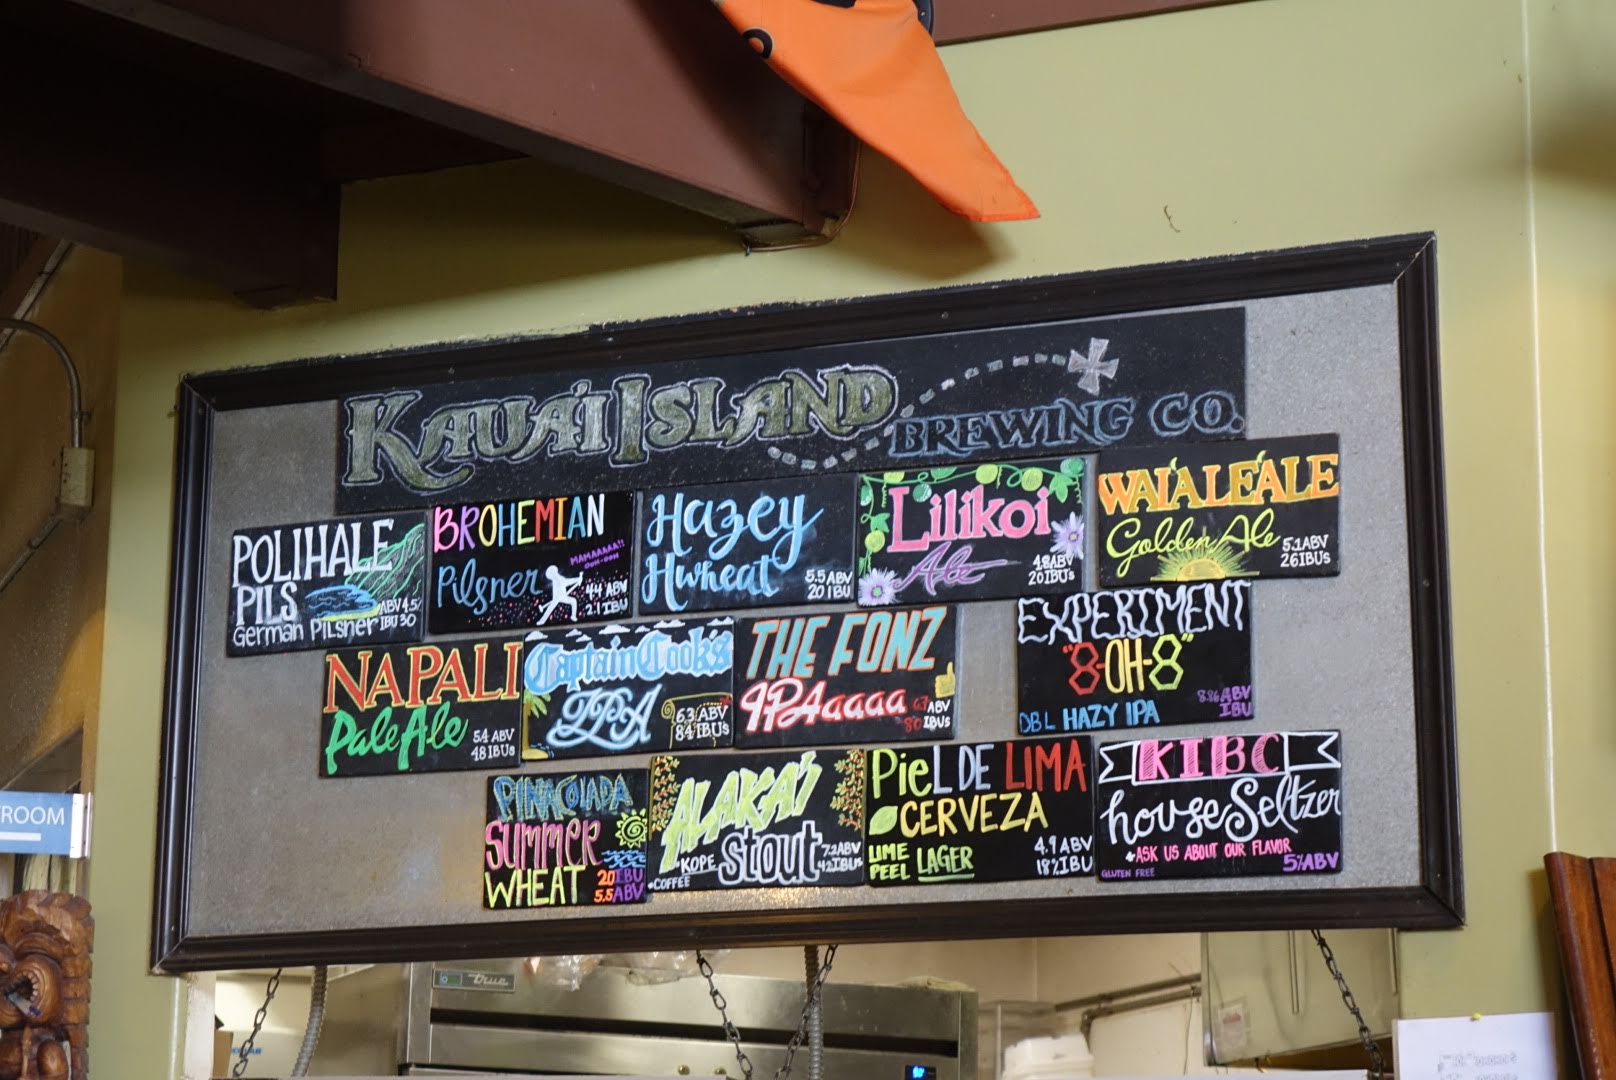 KAUA'I ISLAND
BREWING CO.
POLIHALE
PILS
German Pilsner
ABV 4.5%
IBU 30
BROHEMIAN
MAMAAAAA!!
OOH-OOH
Pilsner
4.4 ABV
2.1 IBU
Hazey
Hwheat
5.5 ABV
20 IBU
Lilikoi
Ale
4.8 ABV
20 IBU's
WAI'ALE'ALE
Golden Ale
5.1 ABV
26 IBUs
NAPALI
Pale Ale
5.4 ABV
48 IBUs
Captain Cook's
IPA
6.3 ABV
84 IBU's
THE FONZ
IPAaaaa
ABV
80 IBUs
EXPERIMENT
"8-OH-8"
DBL HAZY IPA
8.86 ABV
IBU
PINACOLADA
SUMMER
WHEAT
20 IBU
5.5 ABV
ALAKA'I
KOPE Stout
•COFFEE
7.2 ABV
42 IBUs
PIEL DE LIMA
CERVEZA
LIME
PEEL LAGER
4.9 ABV
18% IBU
KIBC
house Seltzer
ASK US ABOUT OUR FLAVOR
GLUTEN FREE
5% ABV
ROOM
true